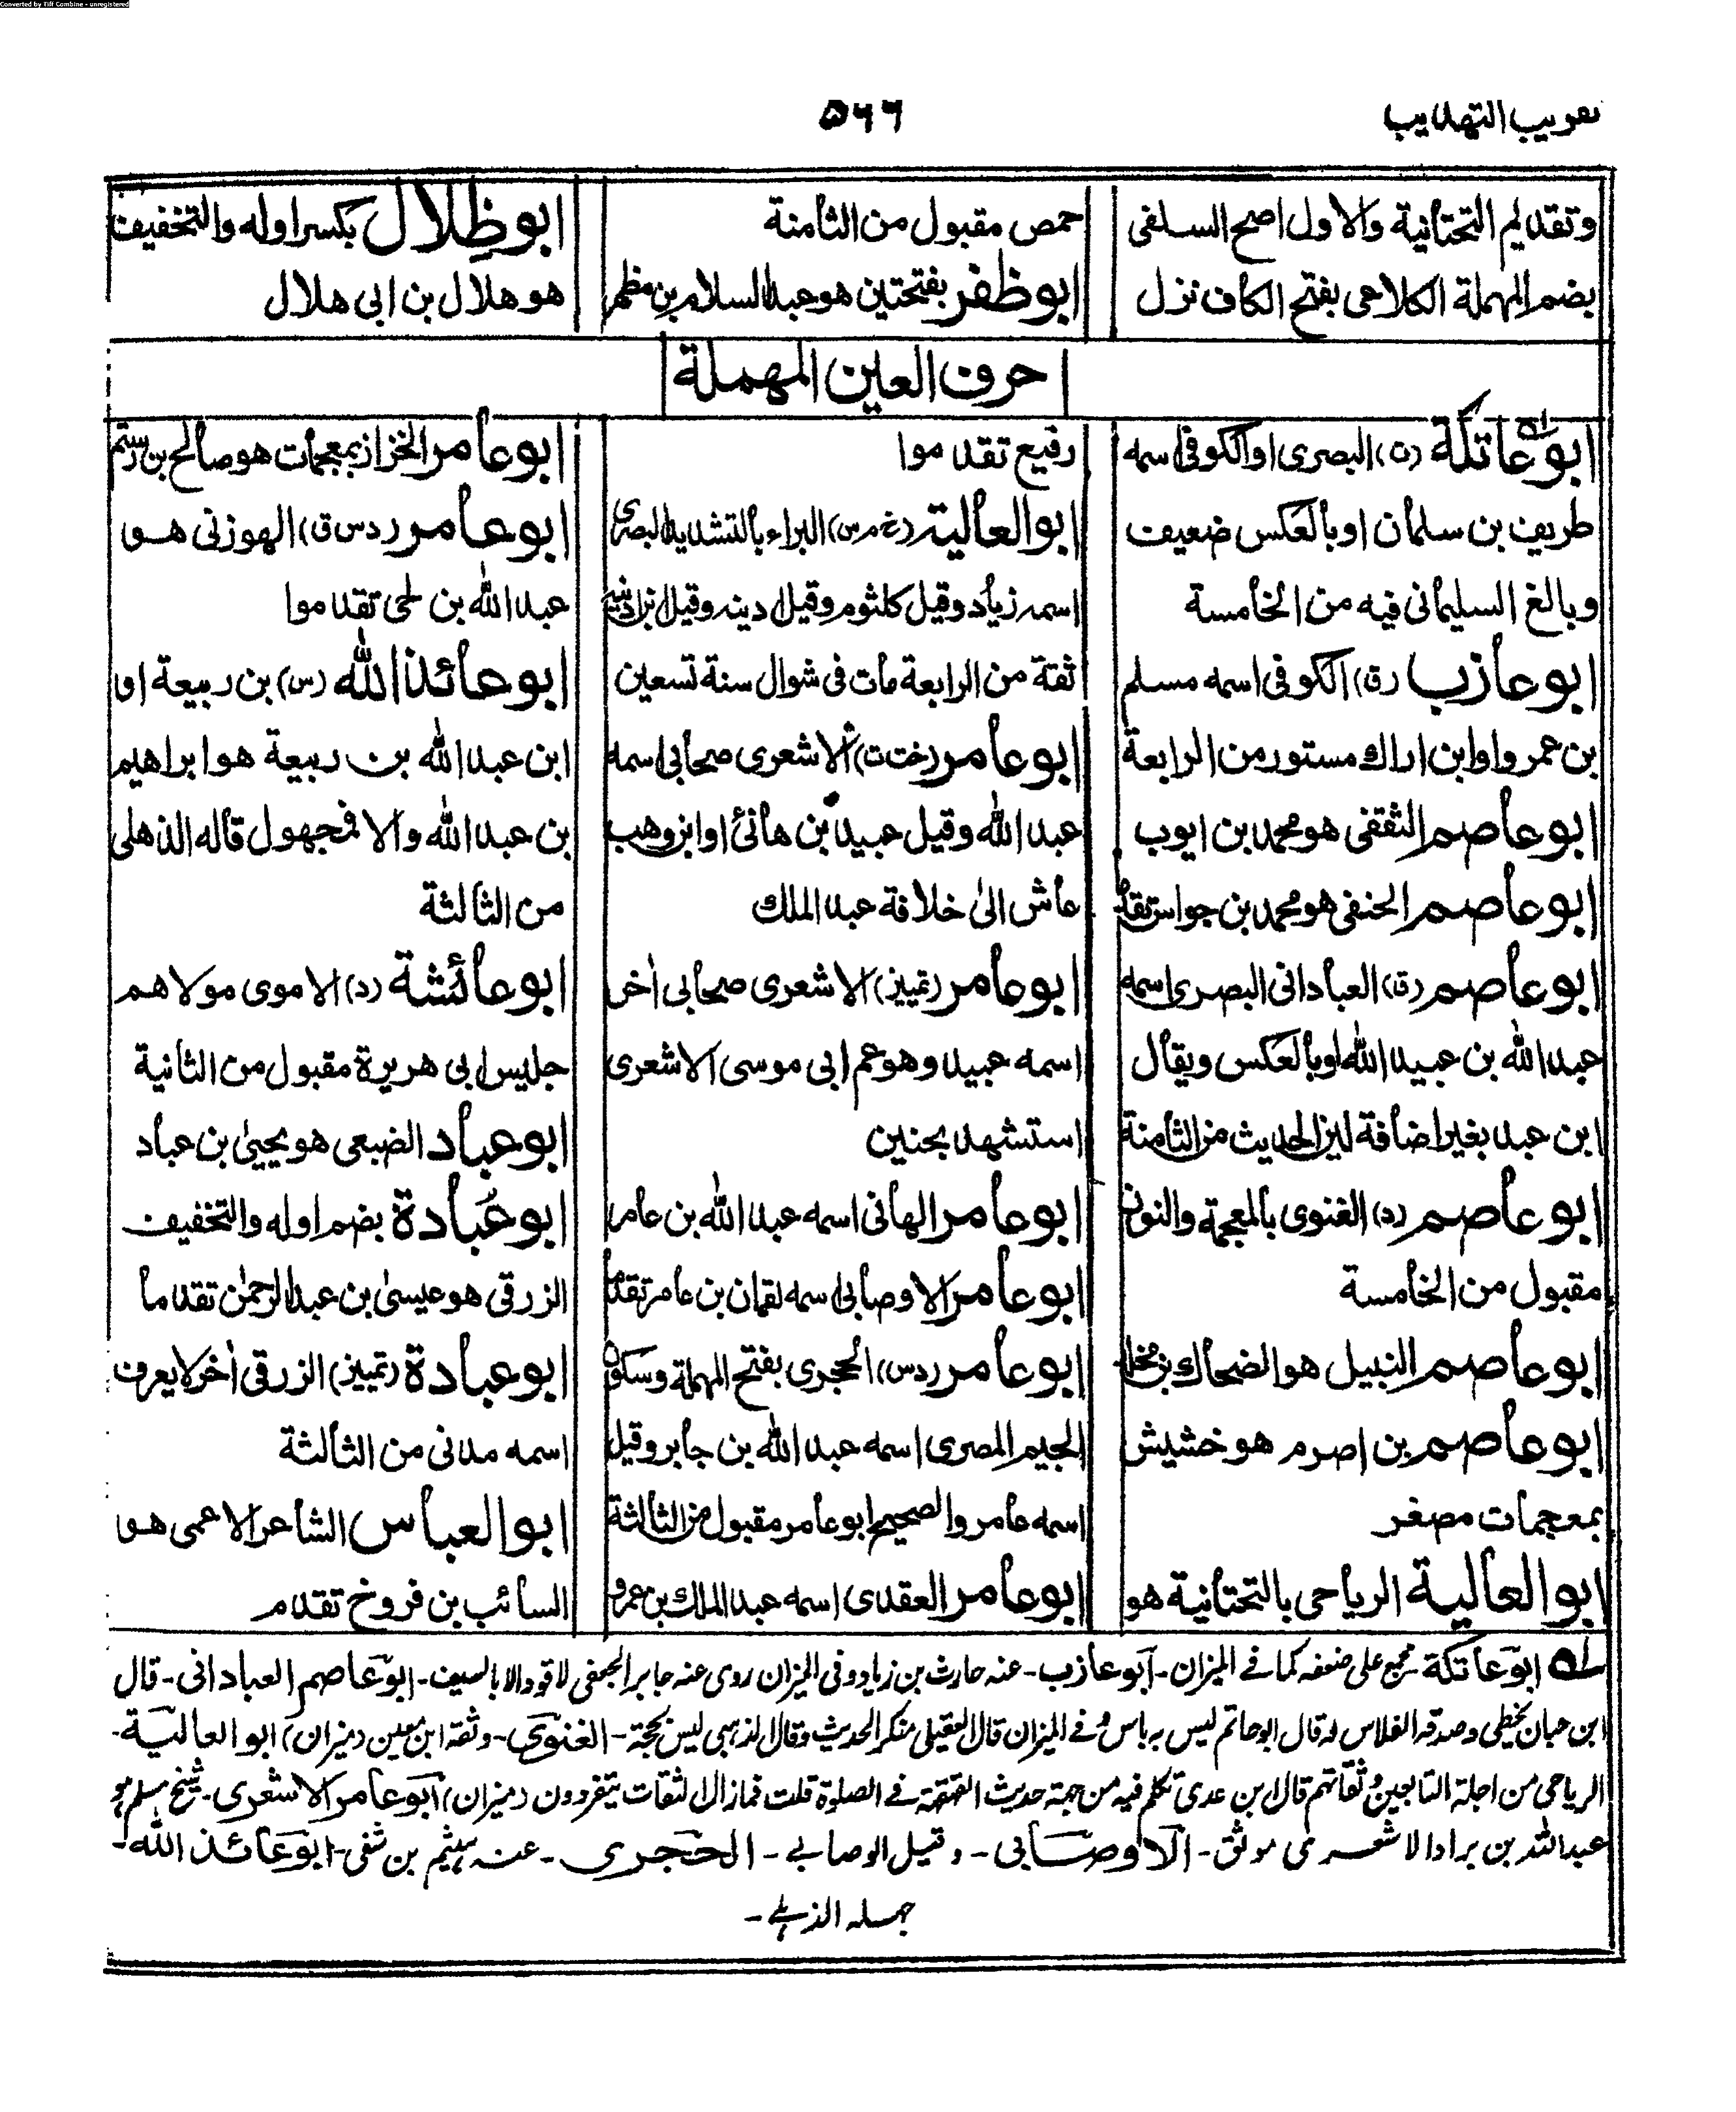 Converted by Tiff Combine - unregistered
تقريب التهذيب
٥٦٦
وتقديم التحتانية والاول اصح السلفى
بضم المهملة الكلاعى بفتح الكاف نزل
حمص مقبول من الثامنة
ابو ظفر بفتحتين هو عبد السلام بن مطهر
ابو ظِلال بكسر اوله والتخفيف
هو هلال بن ابى هلال
حرف العين المهملة
ابو عاتكة (ت) البصرى او الكوفى اسمه
طريف بن سلمان او بالعكس ضعيف
وبالغ السليمانى فيه من الخامسة
ابو عازب (ق) الكوفى اسمه مسلم
بن عمرو او ابن اراك مستور من الرابعة
ابو عاصم الثقفى هو محمد بن ايوب
ابو عاصم الحنفى هو محمد بن جواس تقدما
ابو عاصم (ق) العبادانى البصرى اسمه
عبد الله بن عبيد الله او بالعكس ويقال
ابن عبد بغير اضافة لين الحديث من الثامنة
ابو عاصم (د) الغنوى بالمعجمة والنون
مقبول من الخامسة
ابو عاصم النبيل هو الضحاك بن مخلد
ابو عاصم بن اصرم هو خشيش
بمعجمات مصغر
ابو العالية الرياحى بالتحتانية هو
رفيع تقدموا
ابو العالية (خ م س) البراء بالتشديد البصرى
اسمه زياد وقيل كلثوم وقيل اذينه وقيل ابن اذينة
ثقة من الرابعة مات فى شوال سنة تسعين
ابو عامر (خت ت) الاشعرى صحابى اسمه
عبد الله وقيل عبيد بن هانئ او ابن وهب
عاش الىٰ خلافة عبد الملك
ابو عامر (تمييز) الاشعرى صحابى اٰخر
اسمه عبيد وهو عم ابى موسى الاشعرى
استشهد بحنين
ابو عامر الهانى اسمه عبد الله بن عامر
ابو عامر الاوصابى اسمه لقمان بن عامر تقدما
ابو عامر (د س) الحجرى بفتح المهملة وسكون
الجيم المصرى اسمه عبد الله بن جابر وقيل
اسمه عامر والصحيح ابو عامر مقبول من الثالثة
ابو عامر العقدى اسمه عبد الملك بن عمرو
ابو عامر الخزاز بمعجمات هو صالح بن رستم
ابو عامر (د س ق) الهوزنى هو
عبد الله بن لحى تقدموا
ابو عائذ الله (س) بن ربيعة او
ابن عبد الله بن ربيعة هو ابراهيم
بن عبد الله والا فمجهول قاله الذهلى
من الثالثة
ابو عائشة (د) الاموى مولاهم
جليس ابى هريرة مقبول من الثانية
ابو عباد الضبعى هو يحيىٰ بن عباد
ابو عُبادة بضم اوله والتخفيف
الزرقى هو عيسىٰ بن عبد الرحمٰن تقدما
ابو عبادة (تمييز) الزرقى اٰخر لا يعرف
اسمه مدنى من الثالثة
ابو العباس الشاعر الاعمى هو
السائب بن فروخ تقدم
له ابو عاتكة مجمع على ضعفه كما فے الميزان - ابو عازب - عنه حارث بن زياد وفى الميزان روى عنه جابر الجعفى لا قود الا بالسيف - ابو عاصم العبادانى - قال
ابن حبان يخطى وصدقه الفلاس له قال ابو حاتم ليس به باس وفے الميزان قال العقيلى منكر الحديث وقال الذهبى ليس بحجة - الغنوى - وثقه ابن معين (ميزان) ابو العالية -
الرياحى من اجلة التابعين وثقاتهم قال ابن عدى تكلم فيه من جهة حديث القهقهة فے الصلوة قلت فما زال الثقات يتفردون (ميزان) ابو عامر الاشعرى - شيخ مسلم هو
عبد الله بن براد الاشعرى موثق - الاوصابى - وقيل الوصابے - الحجرى - عنه هيثم بن شفى - ابو عائذ الله -
جهله الذهلے -